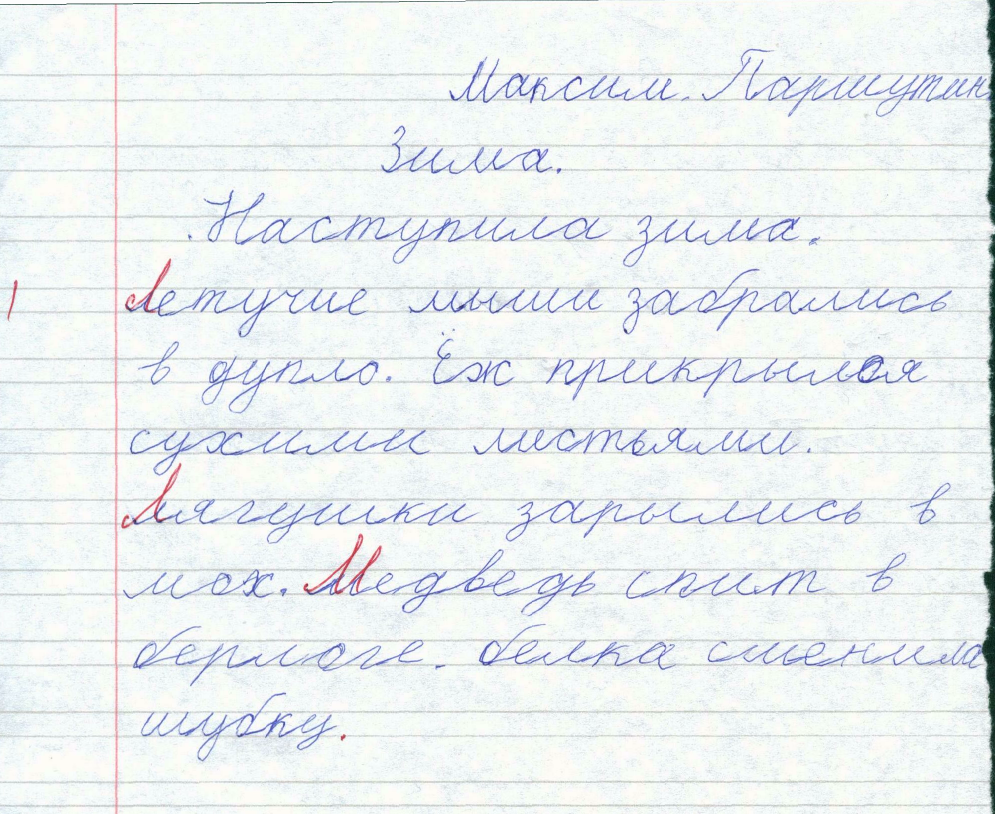 Максим. Паршутин
Зима.
.Наступила зима.
Летучие мыши забрались
в дупло. Ёж прикрылся
сухими листьями.
Лягушки зарылись в
мох. Медведь спит в
берлоге. белка сменила
шубку.